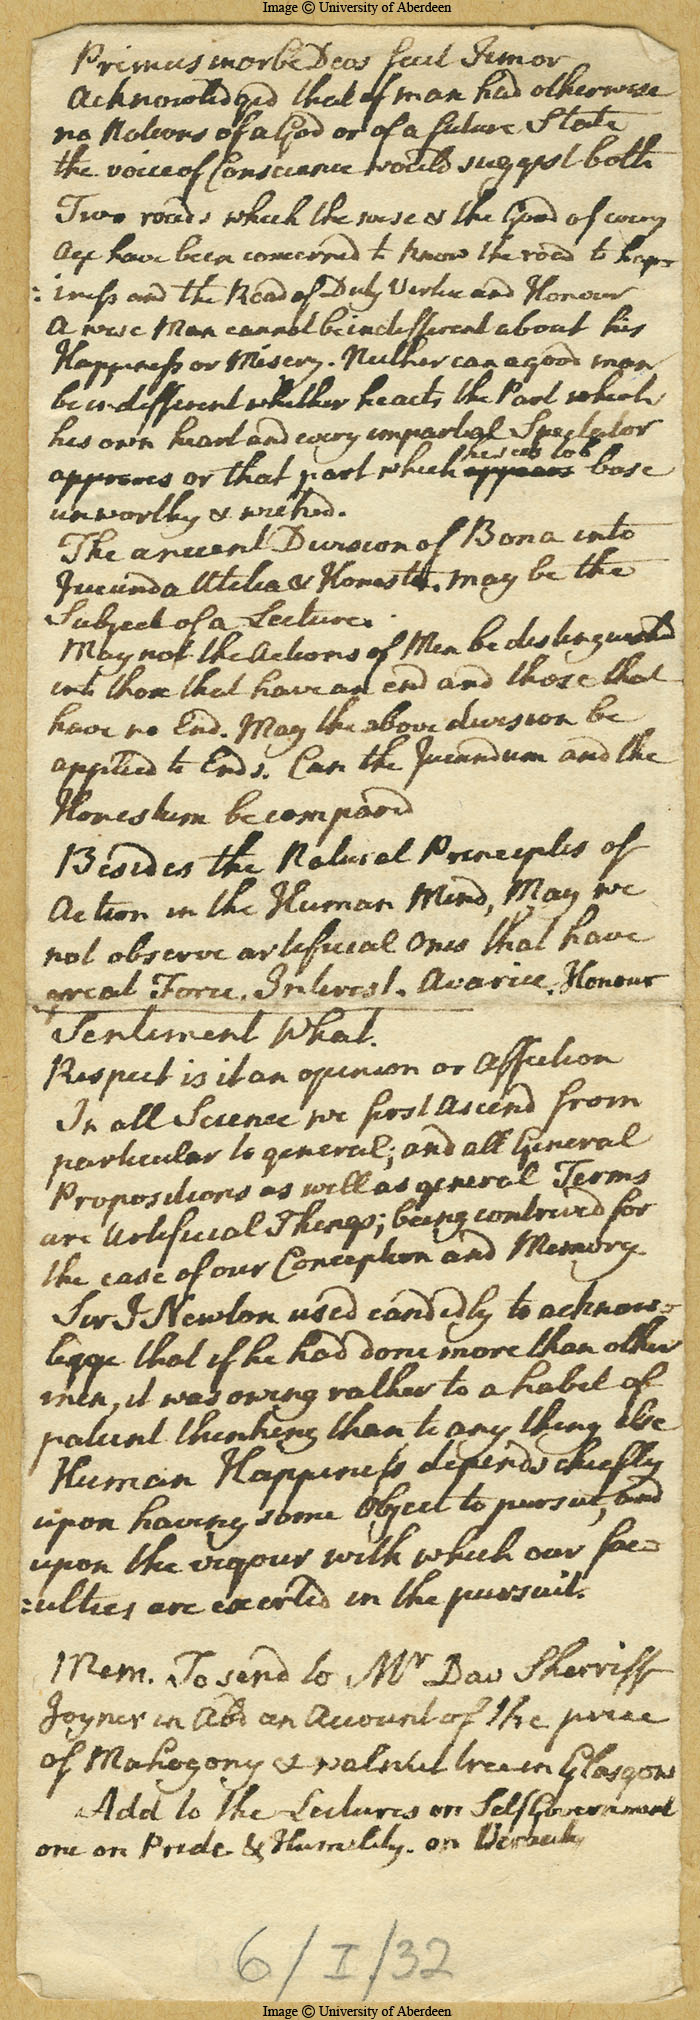 Image © University of Aberdeen
Primus in orbe Deos fecit Timor
Acknowledged that if man had otherwise
no Notions of a God or of a future State
the voice of Conscience would suggest both
Two roads which the wise & the Good of every
age have been concerned to know the road to happ
:iness and the Road of Duty Virtue and Honour
A wise Man cannot be indifferent about his
Happiness or Misery. Neither can a good man
be indifferent whether he acts the Part which
his own heart and every impartial Spectator
approves or that part which appears base
unworthy & wicked.
The ancient Division of Bona into
Jucunda Utilia & Honesta. may be the
Subject of a Lecture.
May not the Actions of Men be distinguished
into those that have an end and those that
have no End. May the above division be
applied to Ends. Can the Jucundum and the
Honestum be compard
Besides the Natural Principles of
Action in the Human Mind, May we
not observe artificial Ones that have
great Force. Interest. Avarice. Honour
Sentiment What.
Respect is it an opinion or Affection
In all Science we first Ascend from
particular to general; and all General
Propositions as well as general Terms
are Artificial Things; being contrived for
the ease of our Conception and Memory
Sir I Newton used candidly to acknow-
legge that if he had done more than other
men, it was owing rather to a habit of
patient thinking than to any thing else
Human Happiness depends chiefly
upon having some Object to pursue, and
upon the vigour with which our fac
:ulties are exerted in the pursuit.
Mem. To send to Mr Dav Sherriff
Joyner in Abd an Account of the price
of Mahogony & walnut tree in Glasgow
Add to the Lectures on Self Government
one on Pride & Humility. on Veracity
6/I/32
Image © University of Aberdeen